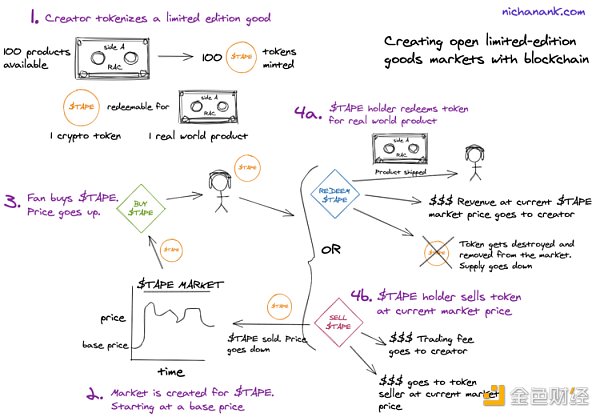 nichanank.com
Creating open limited-edition
goods markets with blockchain
1. Creator tokenizes a limited edition good
100 products
available
side A
RAC
100
$TAPE
tokens
minted
$TAPE
redeemable for
side A
RAC
1 crypto token
1 real world product
2. Market is created for $TAPE.
Starting at a base price
$TAPE MARKET
price
base price
time
3. Fan buys $TAPE.
Price goes up.
$TAPE
BUY
$TAPE
$TAPE
OR
4a. $TAPE holder redeems token
for real world product
side A
RAC
Product shipped
REDEEM
$TAPE
$$$ Revenue at current $TAPE
market price goes to creator
$TAPE
Token gets destroyed and
removed from the market.
Supply goes down
4b. $TAPE holder sells token
at current market price
SELL
$TAPE
$TAPE
$TAPE sold. Price
goes down
$$$ Trading fee
goes to creator
$$$ goes to token
seller at current market
price
金色财经